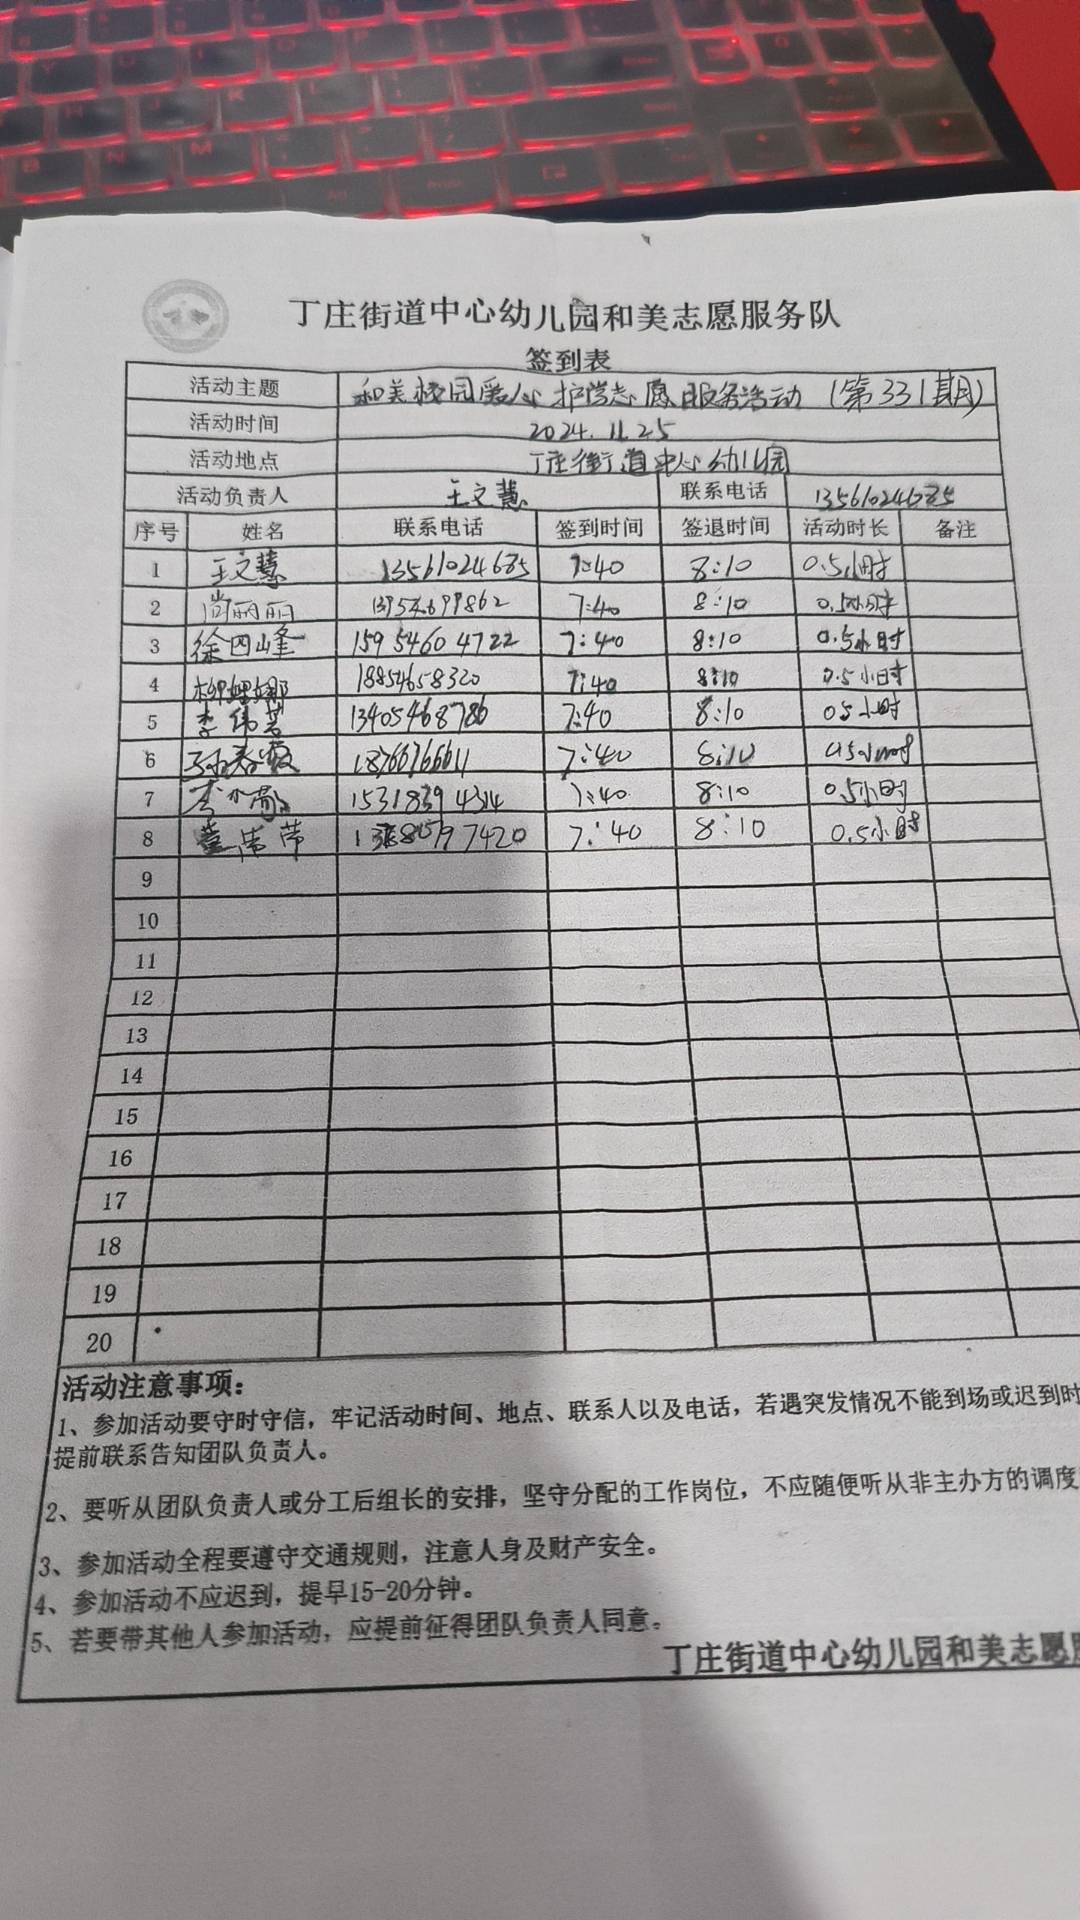 丁庄街道中心幼儿园和美志愿服务队
签到表
活动主题 和美校园爱心护学志愿服务活动（第331期）
活动时间 2024.11.25
活动地点 丁庄街道中心幼儿园
活动负责人 王文慧 联系电话 13561024685
序号 姓名 联系电话 签到时间 签退时间 活动时长 备注
1 王文慧 13561024685 7:40 8:10 0.5小时
2 尚丽丽 13954699862 7:40 8:10 0.5小时
3 徐四峰 15954604722 7:40 8:10 0.5小时
4 18854658320 7:40 8:10 0.5小时
5 李伟芳 13405468786 7:40 8:10 0.5小时
6 18766766611 7:40 8:10 0.5小时
7 7:40 8:10 0.5小时
8 7:40 8:10 0.5小时
9
10
11
12
13
14
15
16
17
18
19
20
活动注意事项：
1、参加活动要守时守信，牢记活动时间、地点、联系人以及电话，若遇突发情况不能到场或迟到时
提前联系告知团队负责人。
2、要听从团队负责人或分工后组长的安排，坚守分配的工作岗位，不应随便听从非主办方的调度
3、参加活动全程要遵守交通规则，注意人身及财产安全。
4、参加活动不应迟到，提早15-20分钟。
5、若要带其他人参加活动，应提前征得团队负责人同意。
丁庄街道中心幼儿园和美志愿